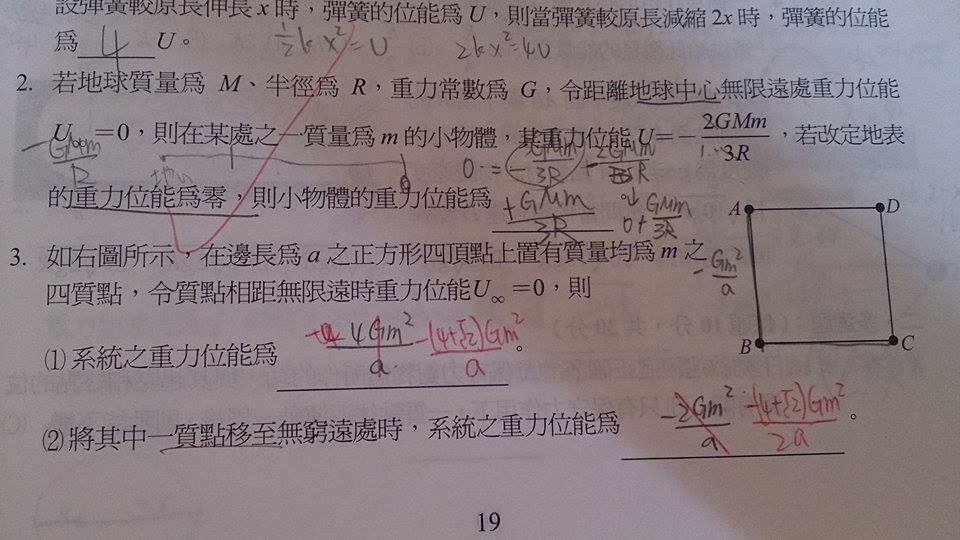 設彈簧較原長伸長 x 時，彈簧的位能爲 U，則當彈簧較原長減縮 2x 時，彈簧的位能
爲 4 U。 ½kx²=U 2kx²=4U
2. 若地球質量爲 M、半徑爲 R，重力常數爲 G，令距離地球中心無限遠處重力位能
U∞=0，則在某處之一質量爲 m 的小物體，其重力位能 U=-2GMm/3R，若改定地表
的重力位能爲零，則小物體的重力位能爲 +GMm/3R 0+GMm/3R
3. 如右圖所示，在邊長爲 a 之正方形四頂點上置有質量均爲 m 之 -Gm²/a
四質點，令質點相距無限遠時重力位能U∞=0，則
A D
B C
(1) 系統之重力位能爲 -4Gm²/a -(4+√2)Gm²/a。
(2) 將其中一質點移至無窮遠處時，系統之重力位能爲 -2Gm²/a -(4+√2)Gm²/2a。
19